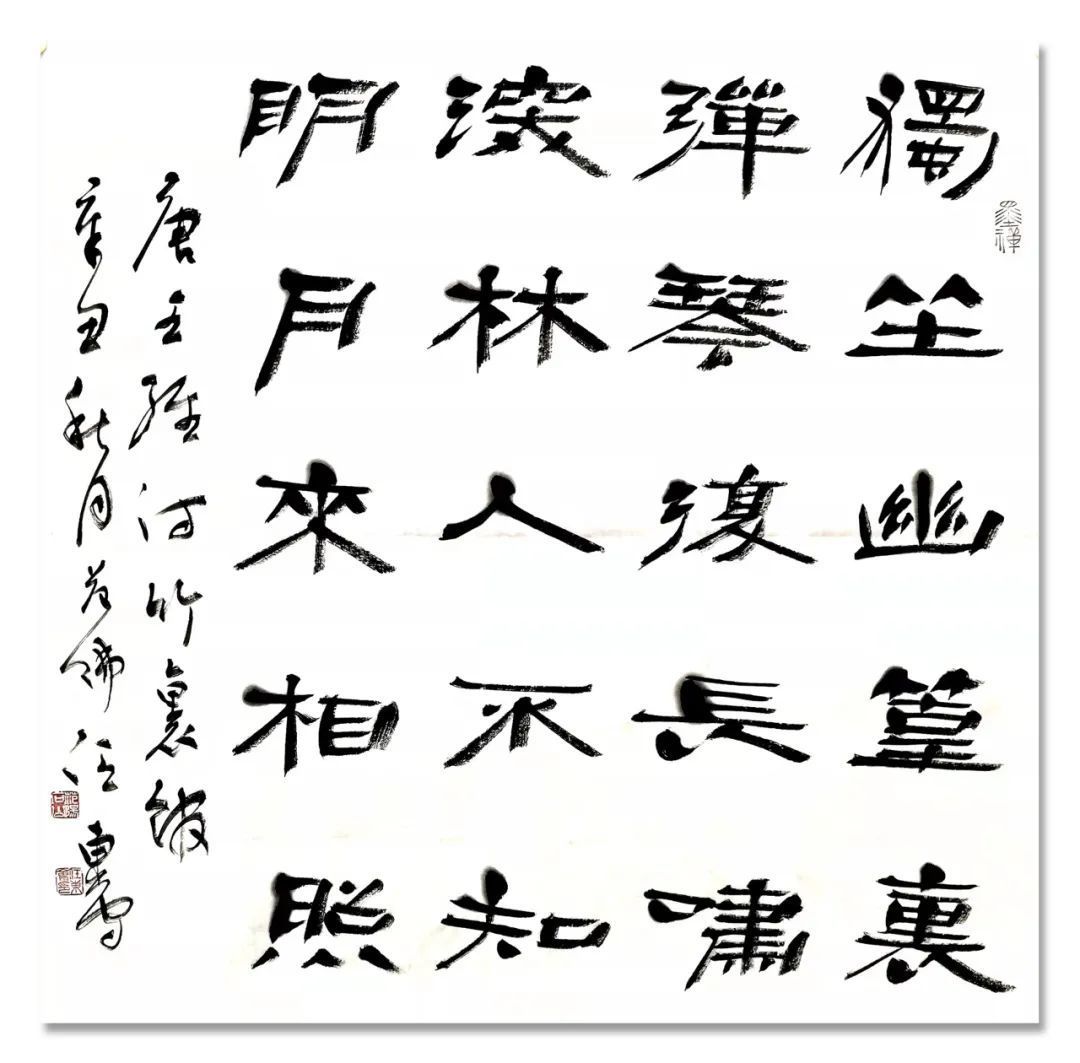 獨坐幽篁裏
彈琴復長嘯
深林人不知
明月來相照
唐王維詩竹裏館
辛丑秋月 佛汪東
墨禪